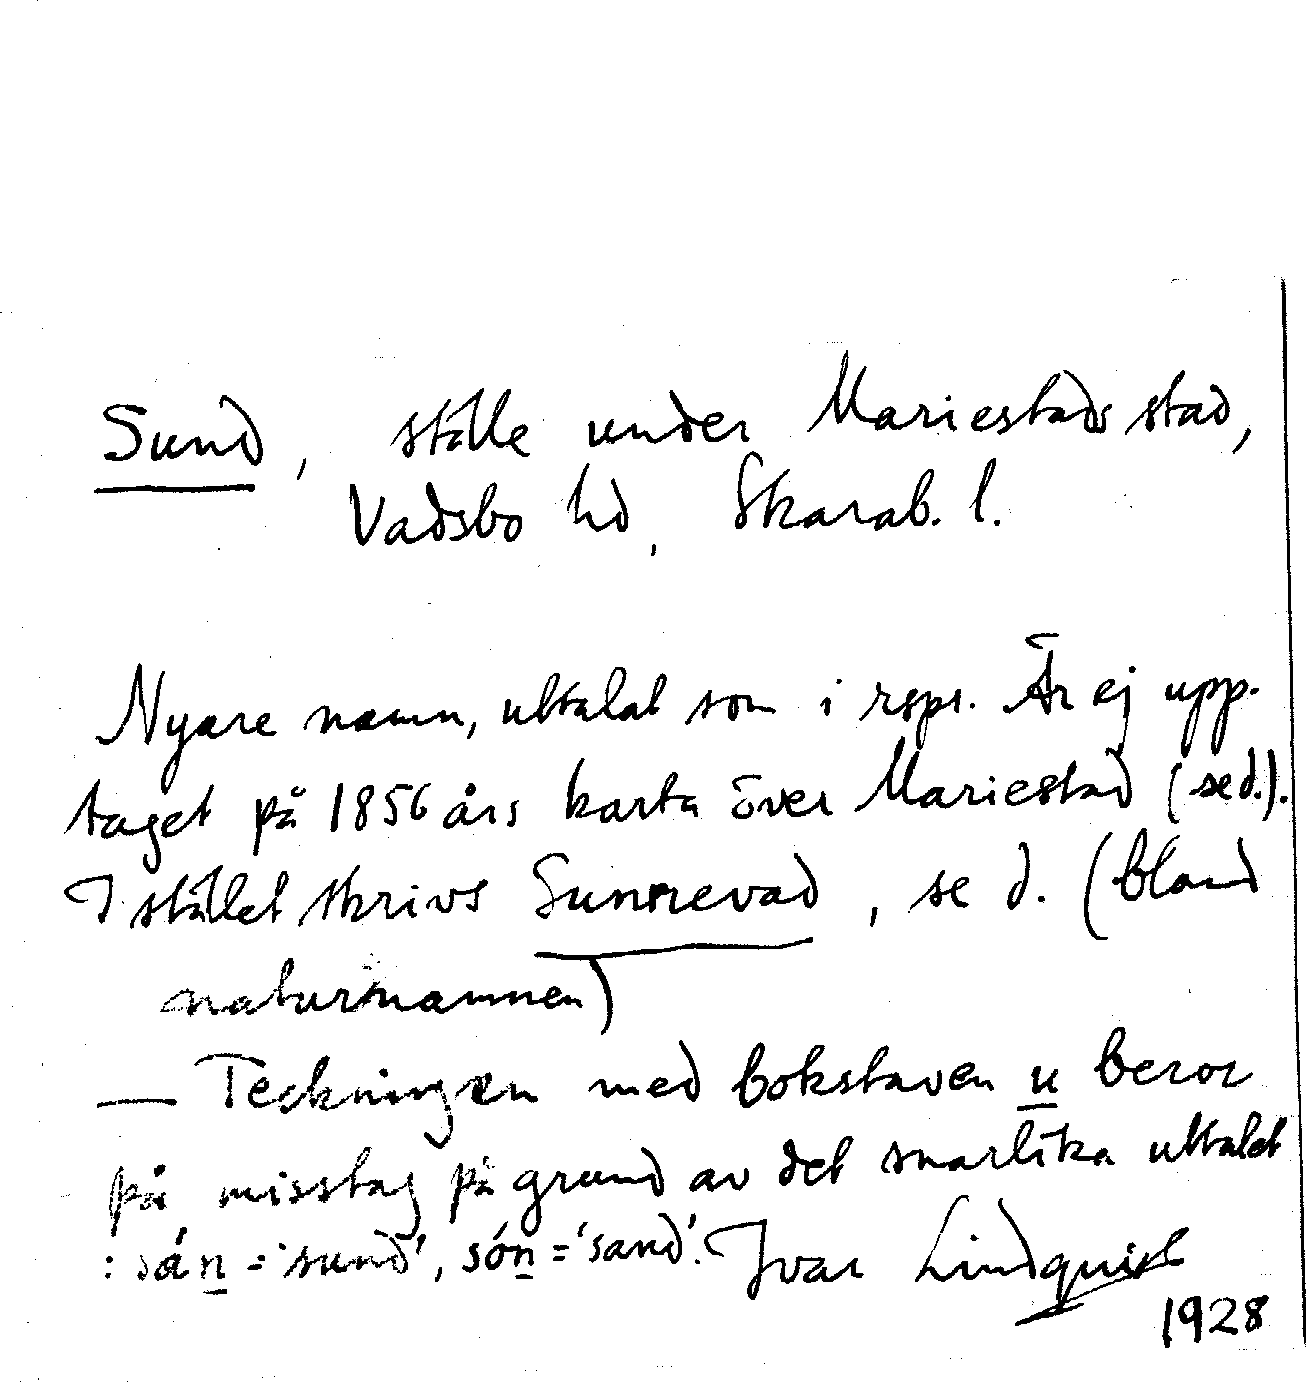 Sund, ställe under Mariestads stad,
Vadsbo hd, Skarab. l.
Nyare namn, uttalat som i rspr. Är ej upp-
taget på 1856 års karta över Mariestad (se d.).
I stället skrivs Sunnevad, se d. (bland
naturnamnen)
— Teckningen med bokstaven u beror
på misstag på grund av det snarlika uttalet
: sán = 'sund', són = 'sand'. Ivar Lindquist
1928